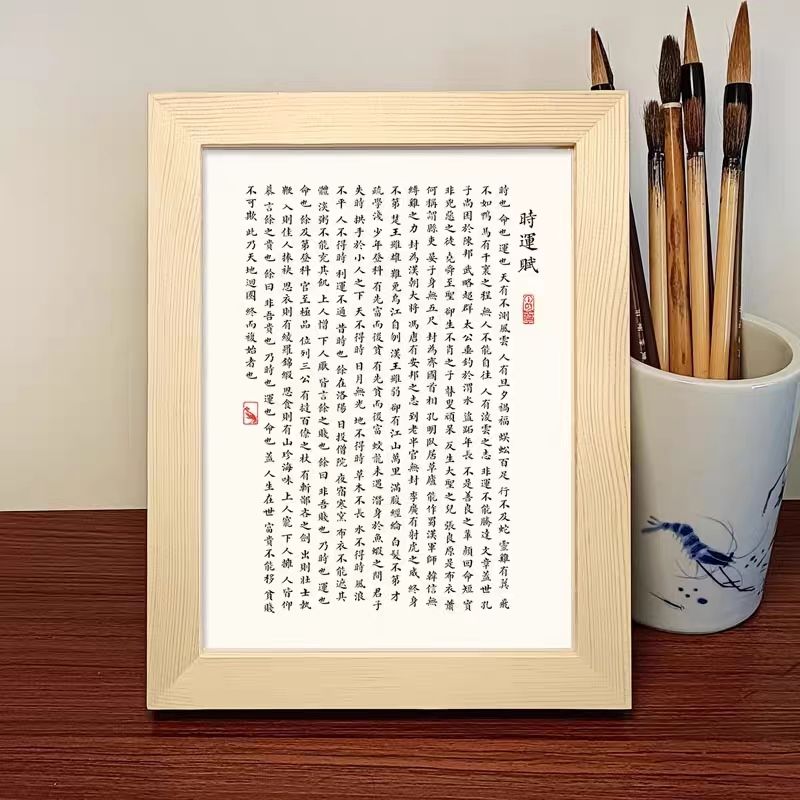 時運賦
時也 命也 運也 天有不測風雲 人有旦夕禍福 蜈蚣百足 行不及蛇 靈雞有翼 飛
不如鴨 馬有千裏之程 無人不能自往 人有淩雲之志 非運不能騰達 文章蓋世 孔
子尚困於陳邦 武略超群 太公垂釣於渭水 盜跖年長 不是善良之輩 顏回命短 實
非兇惡之徒 堯舜至聖 卻生不肖之子 瞽叟頑呆 反生大聖之兒 張良原是布衣 蕭
何稱謂縣吏 晏子身無五尺 封為齊國首相 孔明臥居草廬 能作蜀漢軍師 韓信無
縛雞之力 封為漢朝大將 馮唐有安邦之志 到老半官無封 李廣有射虎之威 終身
不第 楚王雖雄 難免烏江自刎 漢王雖弱 卻有江山萬里 滿腹經綸 白髮不第 才
疏學淺 少年登科 有先富而後貧 有先貧而後富 蛟龍未遇 潛身於魚蝦之間 君子
失時 拱手於小人之下 天不得時 日月無光 地不得時 草木不長 水不得時 風浪
不平 人不得時 利運不通 昔時也 餘在洛陽 日投僧院 夜宿寒窯 布衣不能遮其
體 淡粥不能充其飢 上人憎 下人厭 皆言餘之賤也 餘曰 非吾賤也 乃時也 運也
命也 餘及第登科 官至極品 位列三公 有撻百僚之杖 有斬鄙吝之劍 出則壯士執
鞭 入則佳人捧袂 思衣則有綾羅錦緞 思食則有山珍海味 上人寵 下人擁 人皆仰
慕 言餘之貴也 餘曰 非吾貴也 乃時也 運也 命也 蓋 人生在世 富貴不能移 貧賤
不可欺 此乃天地迴圈 終而複始者也